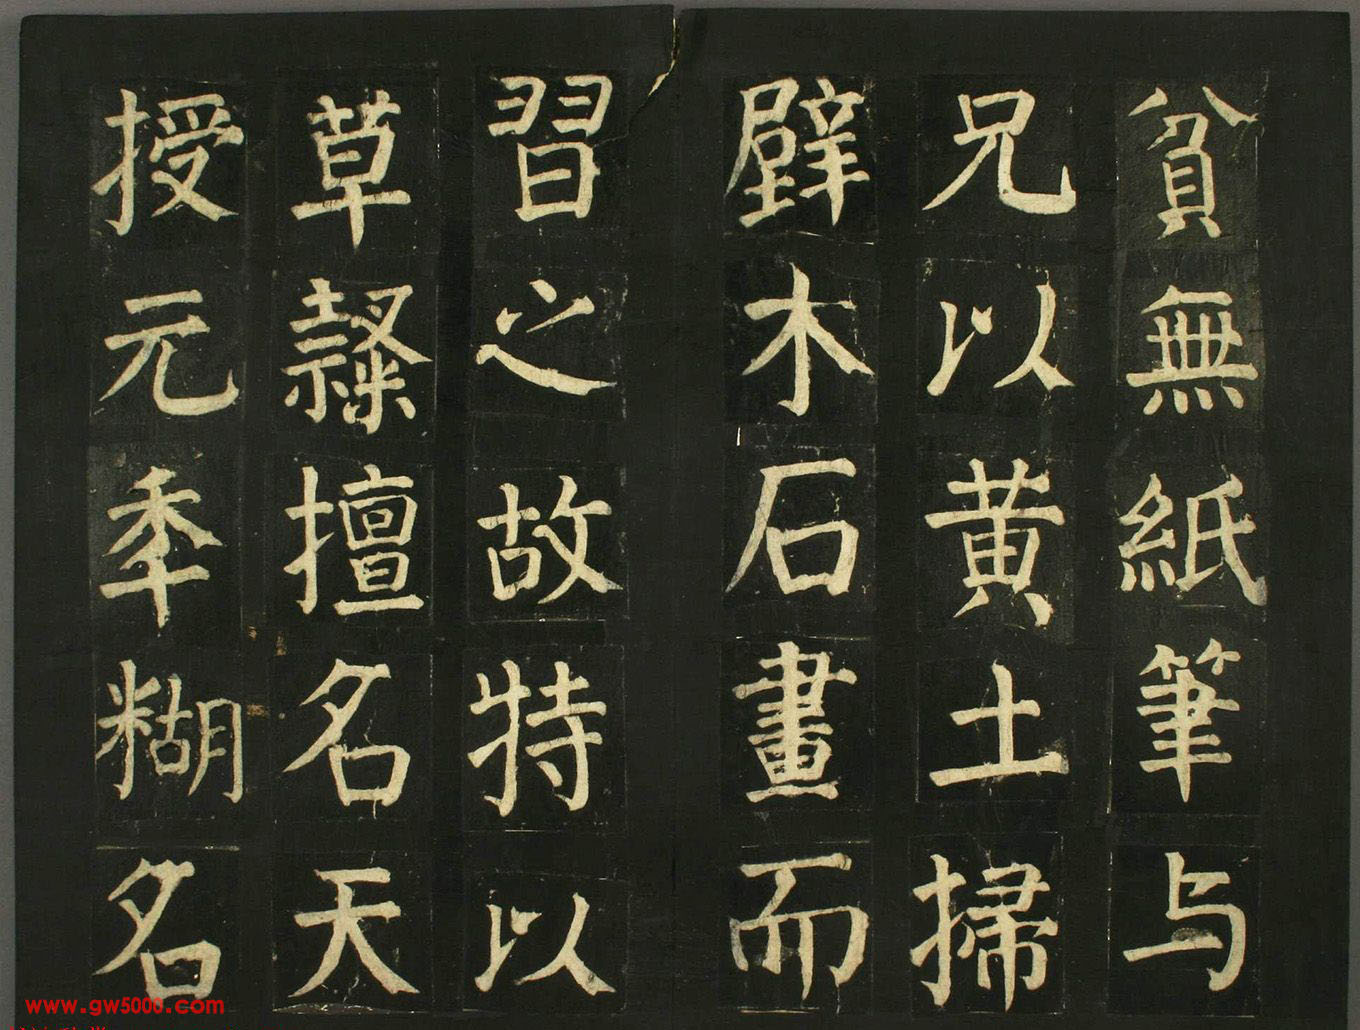 貧無紙筆与
兄以黄土掃
壁木石畫而
習之故特以
草隸擅名天
授元年糊名
www.gw5000.com